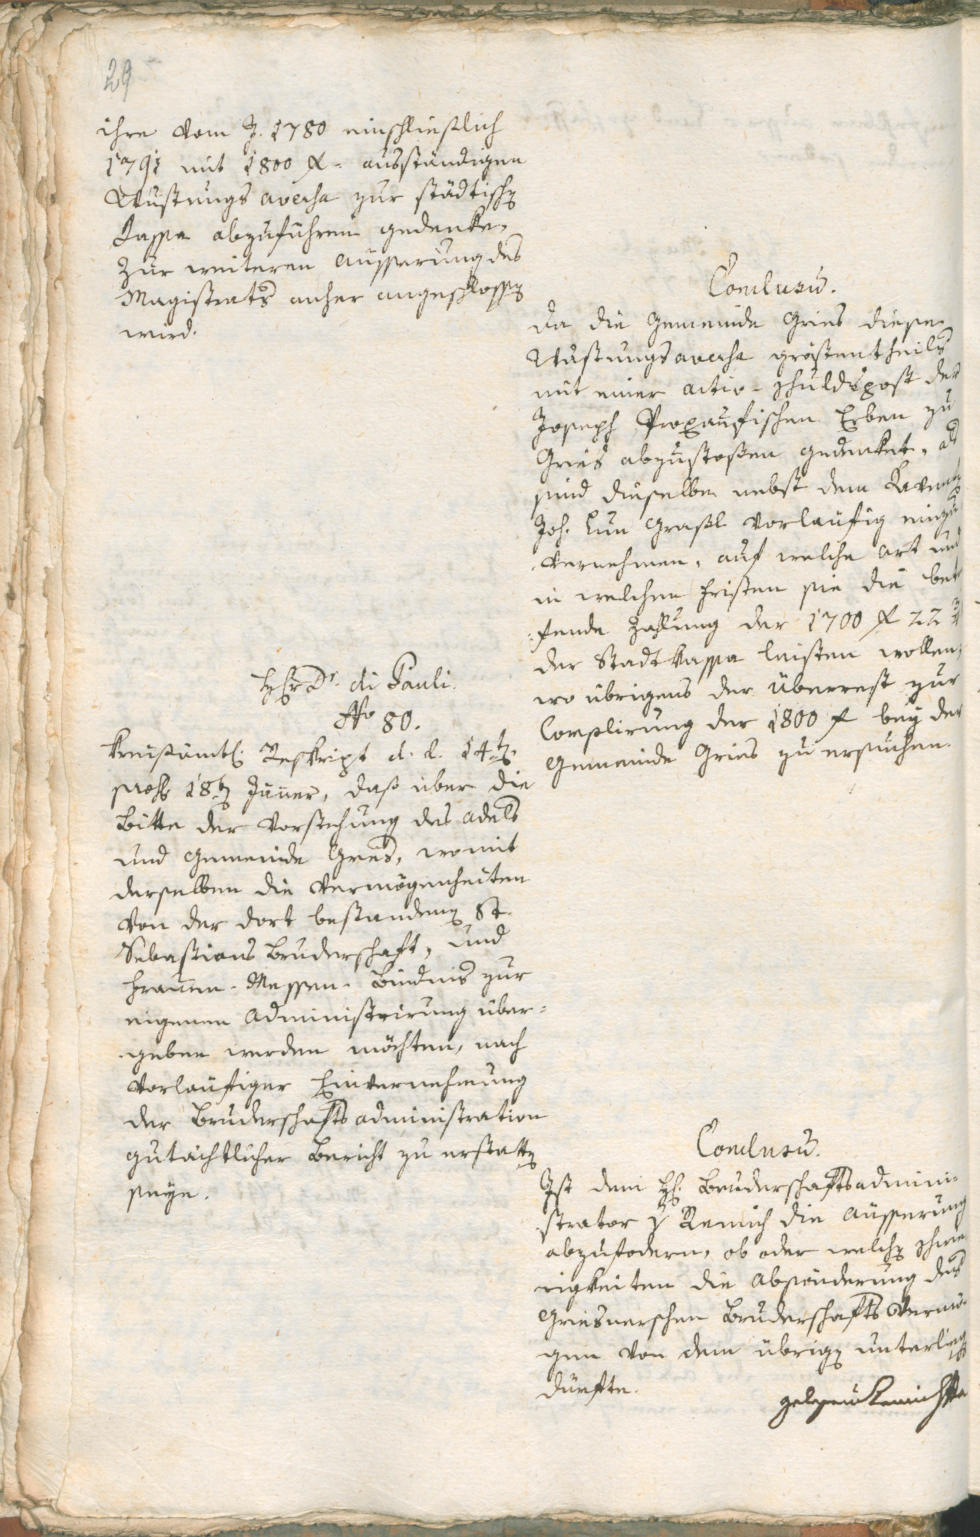 29
ihre vom J. 1780 einschließlich
1791 mit 1800 f. ausständigen
Wustungs aversa zur städtischen
Cassa abzuführen gedenke,
zur weiteren äusserung des
Magistrats anher angeschlossen
wird.
Conclusum.
Da die Gemeinde Gries diese
Wustungsaversa gröstentheils
mit einer activ-schuldspost der
Joseph Proxaufischen Erben zu
Gries abzustossen gedenket, als
sind dieselben nebst dem
Joh. Graßl vorlaüfig einzu
vernehmen, auf welche art und
in welchen fristen sie die bet
fende Zahlung der 1700 f 22 x
der Stadt kassa leisten wollen,
wo übrigens der überrest zur
Complirung der 1800 f bey der
Gemeinde Gries zu ersuchen.
H. Dr. di Pauli.
No 80.
Kreisämtl. Reskript d. d. 14ten
praes. 18ten Jäner, daß über die
Bitte der Vorstehung des adels
und Gemeinde Gries, womit
derselben die Vermögenheiten
von der dort bestandenen St.
Sebastians Bruderschaft, und
Frauen-Messen-Bündnis zur
eigenen Administrirung über-
geben werden möchten, nach
vorlaüfiger Einvernehmung
der Bruderschafts administration
gutächtlicher Bericht zu erstatten
seye.
Conclusum.
Ist dem H. Bruderschaftsadmini-
strator v Remich die äusserung
abzufodern, ob oder welche schwie
rigkeiten die absönderung des
Griesnerschen Bruderschafts Vermö-
gen von dem übrigen unterliegen
dürfte.
gelesen